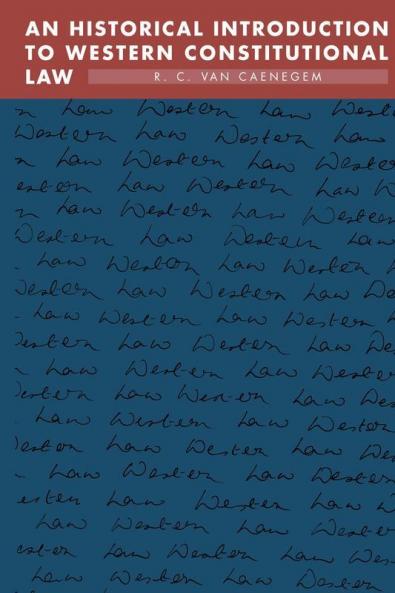 AN HISTORICAL INTRODUCTION
TO WESTERN CONSTITUTIONAL
LAW R. C. VAN CAENEGEM
n Law Western Law West
Western Law Western Law
n Law Western Law Wester
estern Law Western Law W
n Law Western Law Western
Western Law Western Law
. Law Western Law Western
estern Law Western Law We
. Law Western Law Western
estern Law Western Law We
n Law Western Law Weste
estern Law Western Law We
. Law Western Law Western
estern Law Western Law Wes
. Law Western Law Western
estern Law Western Law W
Law Western Law Weste
estern Law Western Law Wes
Law Western Law Western